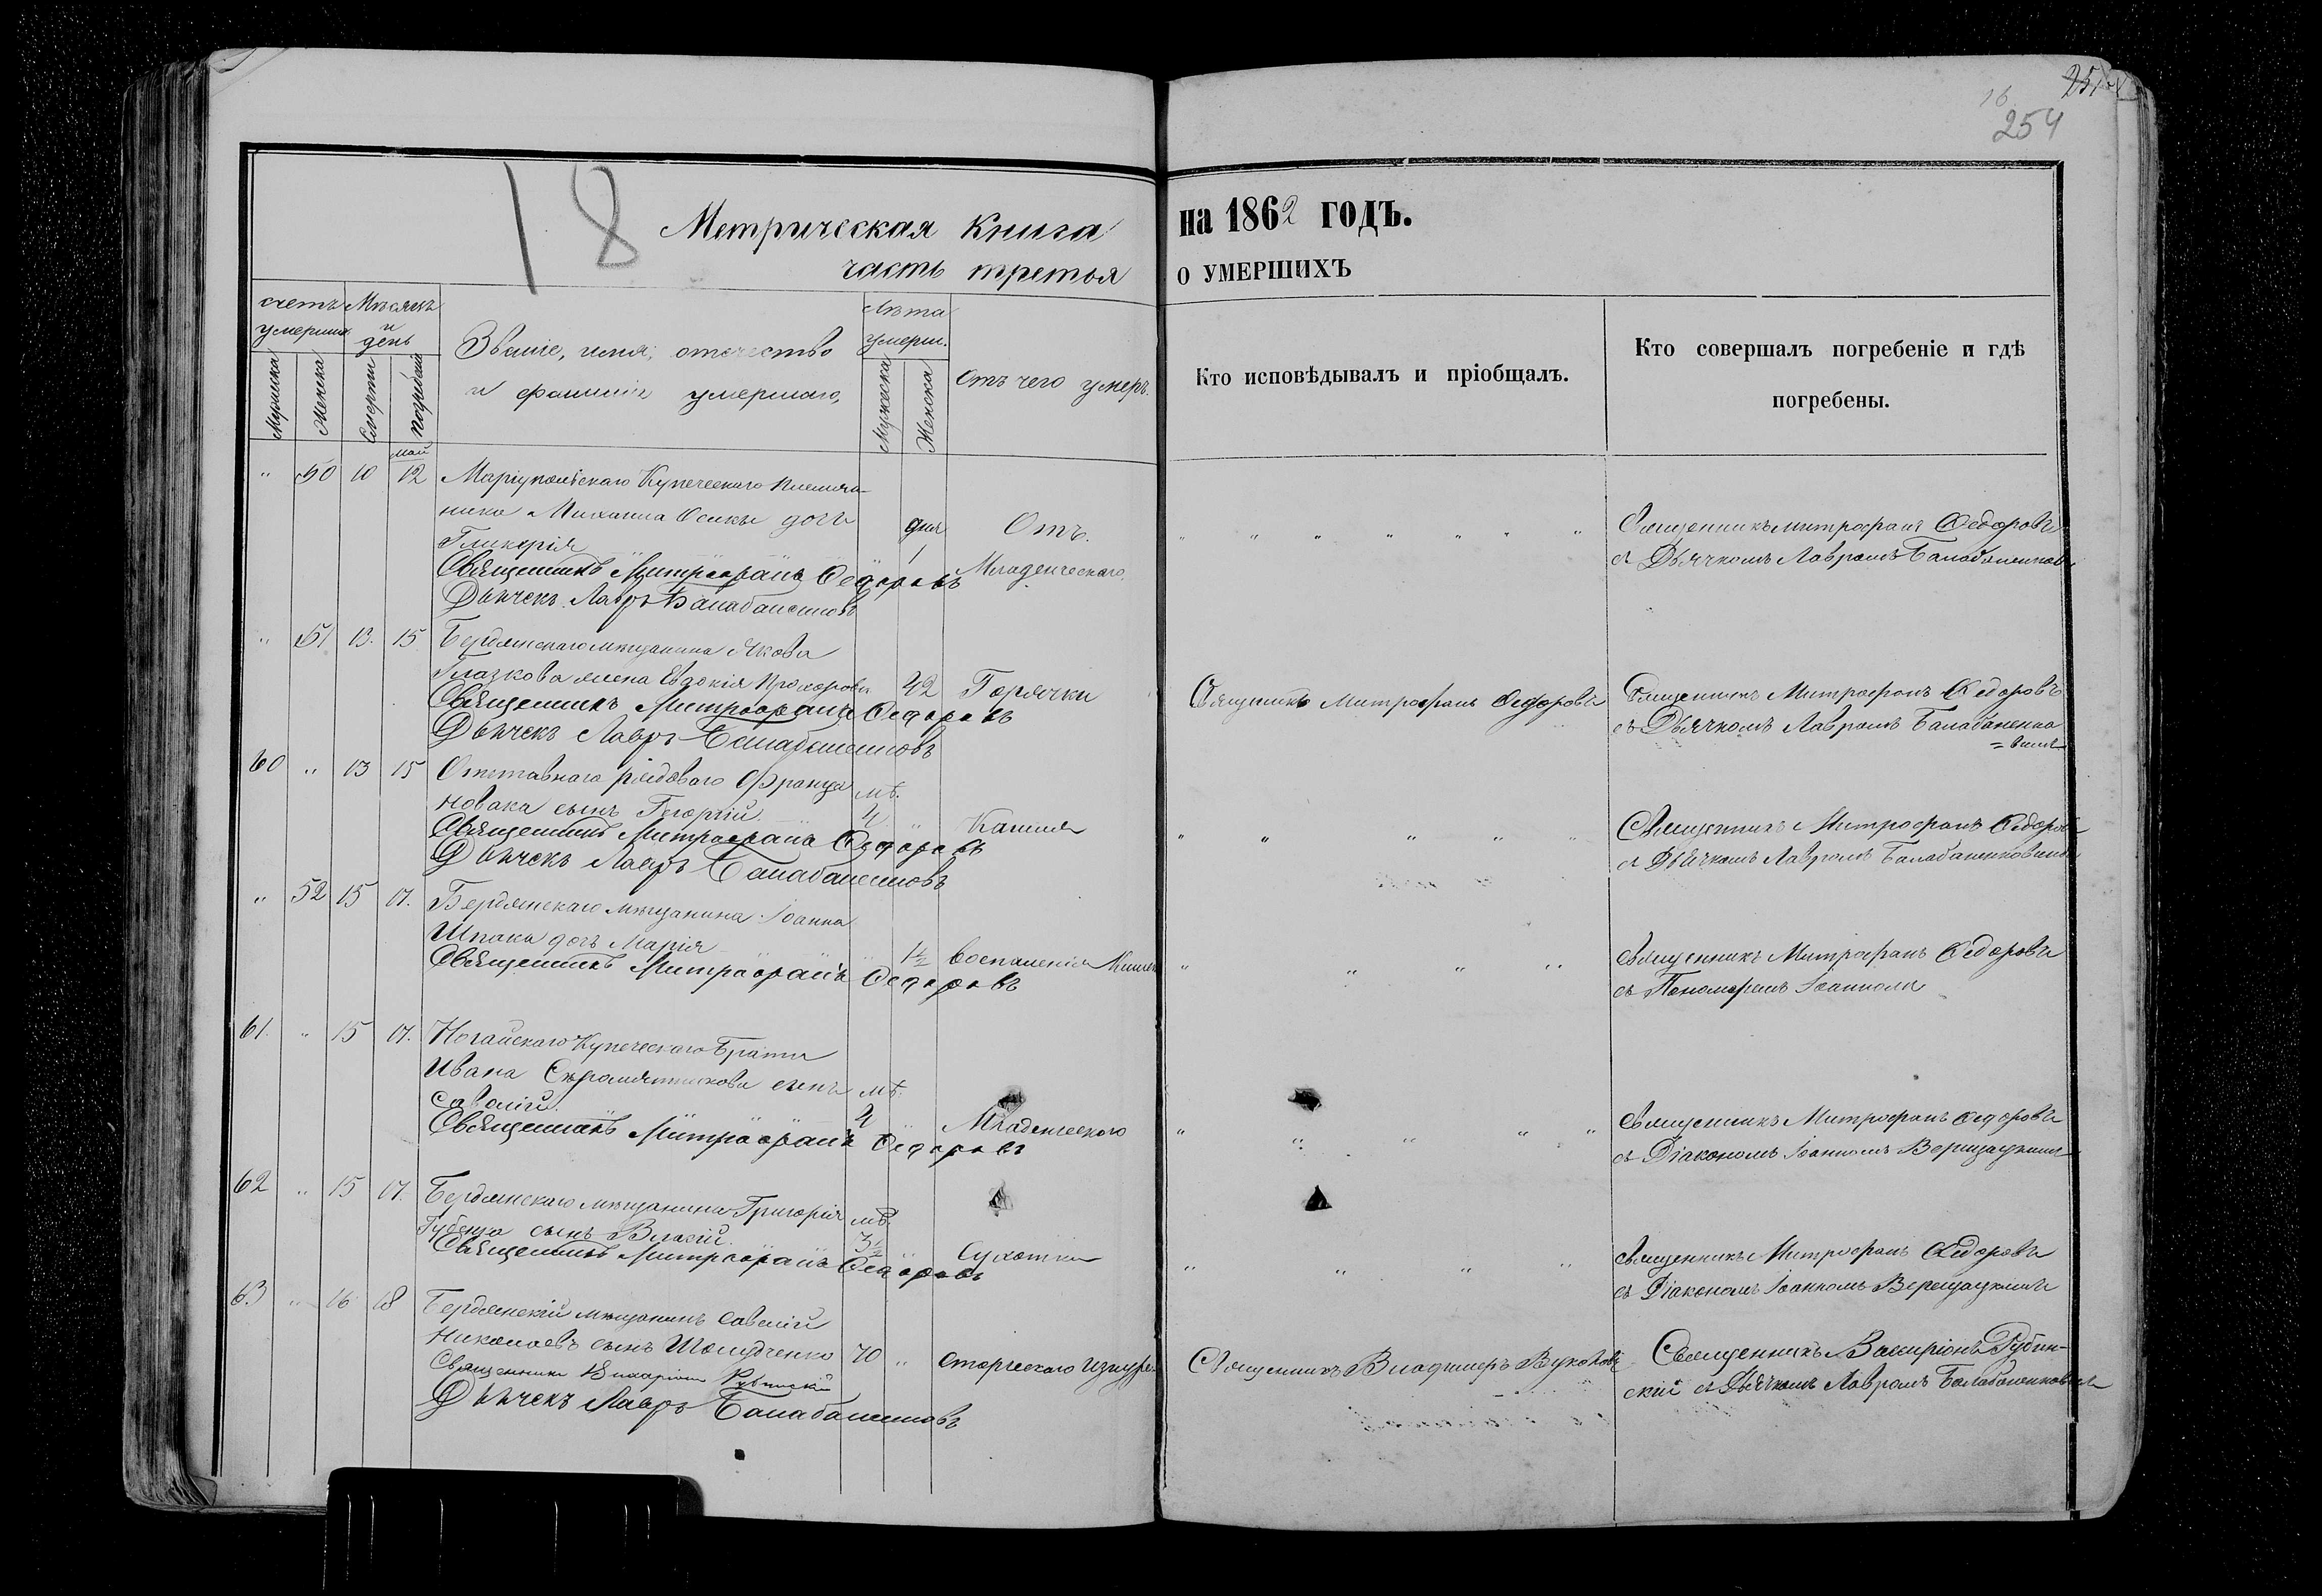 251
16
254
18
Метрическая Книга на 1862 ГОДЪ.
часть третья О УМЕРШИХЪ
счетъ умершихъ
Мѣсяцъ и день
Мужеска
Женска
Смерти
Погребенія
Званіе, имя, отечество
и фамилія умершаго,
Лѣта умерш.
Мужеска
Женска
Отъ чего умеръ.
Кто исповѣдывалъ и пріобщалъ.
Кто совершалъ погребеніе и гдѣ
погребены.
май
" 50 10 12 Маріупольскаго Купеческаго племян-
ника Михаила Осики дочь
Гликерія дня 1 Отъ Младенческаго
Священникъ Митрофанъ Федоровъ
Дьячекъ Лавръ Балабаненковъ
Священникъ Митрофанъ Федоровъ
съ Дьячкомъ Лавромъ Балабаненков
" 51 13. 15 Бердянскаго мѣщанина Якова
Глазкова жена Евдокія Прохорова 42 Горячки
Священникъ Митрофанъ Федоровъ
Дьячекъ Лавръ Балабаненковъ
Священникъ Митрофанъ Федоровъ
Священникъ Митрофанъ Федоровъ
съ Дьячкомъ Лавромъ Балабаненко
=вымъ
60 " 13 15 Отставнаго рядоваго Франца
Новака сынъ Георгій. мѣ. 4 " Кашля
Священникъ Митрофанъ Федоровъ
Дьячекъ Лавръ Балабаненковъ
Священникъ Митрофанъ Федоров
съ Дьячкомъ Лавромъ Балабаненковымъ
" 52 15 17. Бердянскаго мѣщанина Іоанна
Шпака дочь Марія " 1½ воспаленія Кишек
Священникъ Митрофанъ Федоровъ
Священникъ Митрофанъ Федоровъ
съ Пономаремъ Іоанномъ
61. " 15 17. Ногайскаго Купеческаго брата
Ивана сынъ
Савелій. мѣ. " Младенческаго
Священникъ Митрофанъ Федоровъ
Священникъ Митрофанъ Федоровъ
съ Діакономъ Іоанномъ Верещацкимъ
62 " 15 17. Бердянскаго мѣщанина Григорія
Губенка сынъ Власій. мѣ. 3½ " Сухотки
Священникъ Митрофанъ Федоровъ
Священникъ Митрофанъ Федоровъ
съ Діакономъ Іоанномъ Верещацкимъ
63 " 16 18 Бердянскій мѣщанинъ Савелій
Николаевъ сынъ 70 " Старческаго изнурен
Священникъ Рубинскій
Дьячекъ Лавръ Балабаненковъ
Священникъ Владимеръ
Священникъ Рубин-
скій съ Дьячкомъ Лавромъ Балабаненковымъ